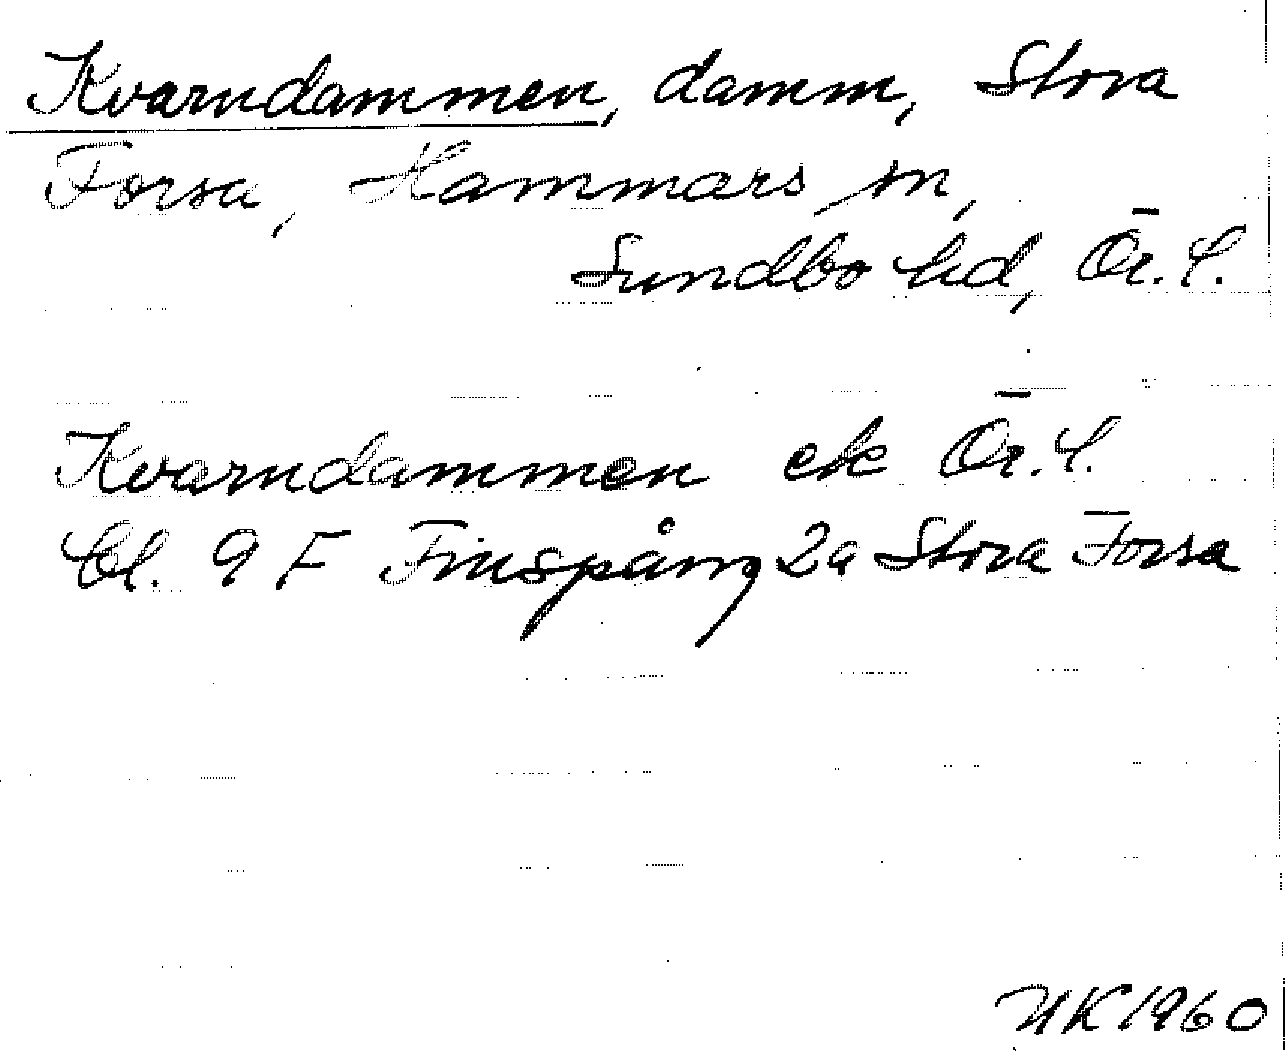 Kvarndammen, damm, Stora
Forsa, Hammars sn,
Sundbo hd, Ör. l.
Kvarndammen ek Ör. l.
Bl. 9 F Finspång 2a Stora Forsa
NK 1960